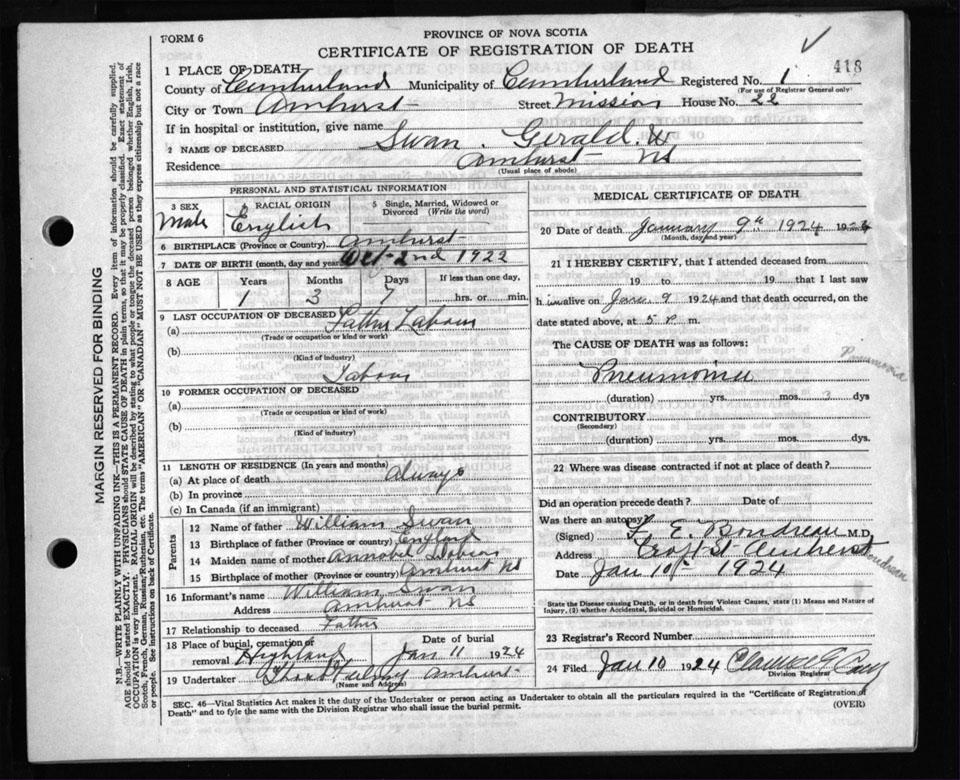 FORM 6
PROVINCE OF NOVA SCOTIA
CERTIFICATE OF REGISTRATION OF DEATH
418
1 PLACE OF DEATH—
County of Cumberland Municipality of Cumberland Registered No. 1
(For use of Registrar General only)
City or Town Amherst Street Mission House No. 22
If in hospital or institution, give name
2 NAME OF DECEASED Swan. Gerald. W
Residence Amherst NS
(Usual place of abode)
PERSONAL AND STATISTICAL INFORMATION
3 SEX Male
4 RACIAL ORIGIN English
5 Single, Married, Widowed or Divorced (Write the word)
6 BIRTHPLACE (Province or Country) Amherst
7 DATE OF BIRTH (month, day and year) Oct 2nd 1922
8 AGE Years Months Days If less than one day,
1 3 7 hrs. or min.
9 LAST OCCUPATION OF DECEASED
(a) Father Labour
(Trade or occupation or kind of work)
(b)
(Kind of industry)
Labour
10 FORMER OCCUPATION OF DECEASED
(a)
(Trade or occupation or kind of work)
(b)
(Kind of industry)
11 LENGTH OF RESIDENCE (In years and months)
(a) At place of death Always
(b) In province
(c) In Canada (if an immigrant)
Parents
12 Name of father William Swan
13 Birthplace of father (Province or country) England
14 Maiden name of mother Annabel
15 Birthplace of mother (Province or country) Amherst NS
16 Informant's name William Swan
Address Amherst NS
17 Relationship to deceased Father
18 Place of burial, cremation or removal Highland Date of burial Jan 11 1924
19 Undertaker Amherst
(Name and Address)
MEDICAL CERTIFICATE OF DEATH
20 Date of death January 9th 1924 192
(Month, day and year)
21 I HEREBY CERTIFY, that I attended deceased from
19 to 19 that I last saw
h im alive on Jan 9 1924 and that death occurred, on
date stated above, at 5 P. m.
The CAUSE OF DEATH was as follows:
Pneumonia
Pneumonia
(duration) yrs. mos. 3 dys
CONTRIBUTORY
(Secondary)
(duration) yrs. mos. dys.
22 Where was disease contracted if not at place of death?
Did an operation precede death? Date of
Was there an autopsy
(Signed) E. Boudreau M.D.
Address Croft St Amherst
Boudreau
Date Jan 10th 1924
State the Disease causing Death, or in death from Violent Causes, state (1) Means and Nature of Injury, (2) whether Accidental, Suicidal or Homicidal.
23 Registrar's Record Number
24 Filed Jan 10 1924 Clarence
Division Registrar
SEC. 46—Vital Statistics Act makes it the duty of the Undertaker or person acting as Undertaker to obtain all the particulars required in the "Certificate of Registration of
Death" and to fyle the same with the Division Registrar who shall issue the burial permit.
(OVER)
MARGIN RESERVED FOR BINDING
N.B.—WRITE PLAINLY WITH UNFADING INK—THIS IS A PERMANENT RECORD. Every item of information should be carefully supplied.
AGE should be stated EXACTLY. PHYSICIANS should STATE CAUSE OF DEATH in plain terms, so that it may be properly classified. Exact statement of
OCCUPATION is very important. RACIAL ORIGIN will be described by stating to what people or tongue the deceased person belonged whether English, Irish,
Scotch, French, German, Russian, Ruthenian, etc. The terms "AMERICAN" OR "CANADIAN" MUST NOT BE USED as they express citizenship but not a race
or people. See instructions on back of Certificate.